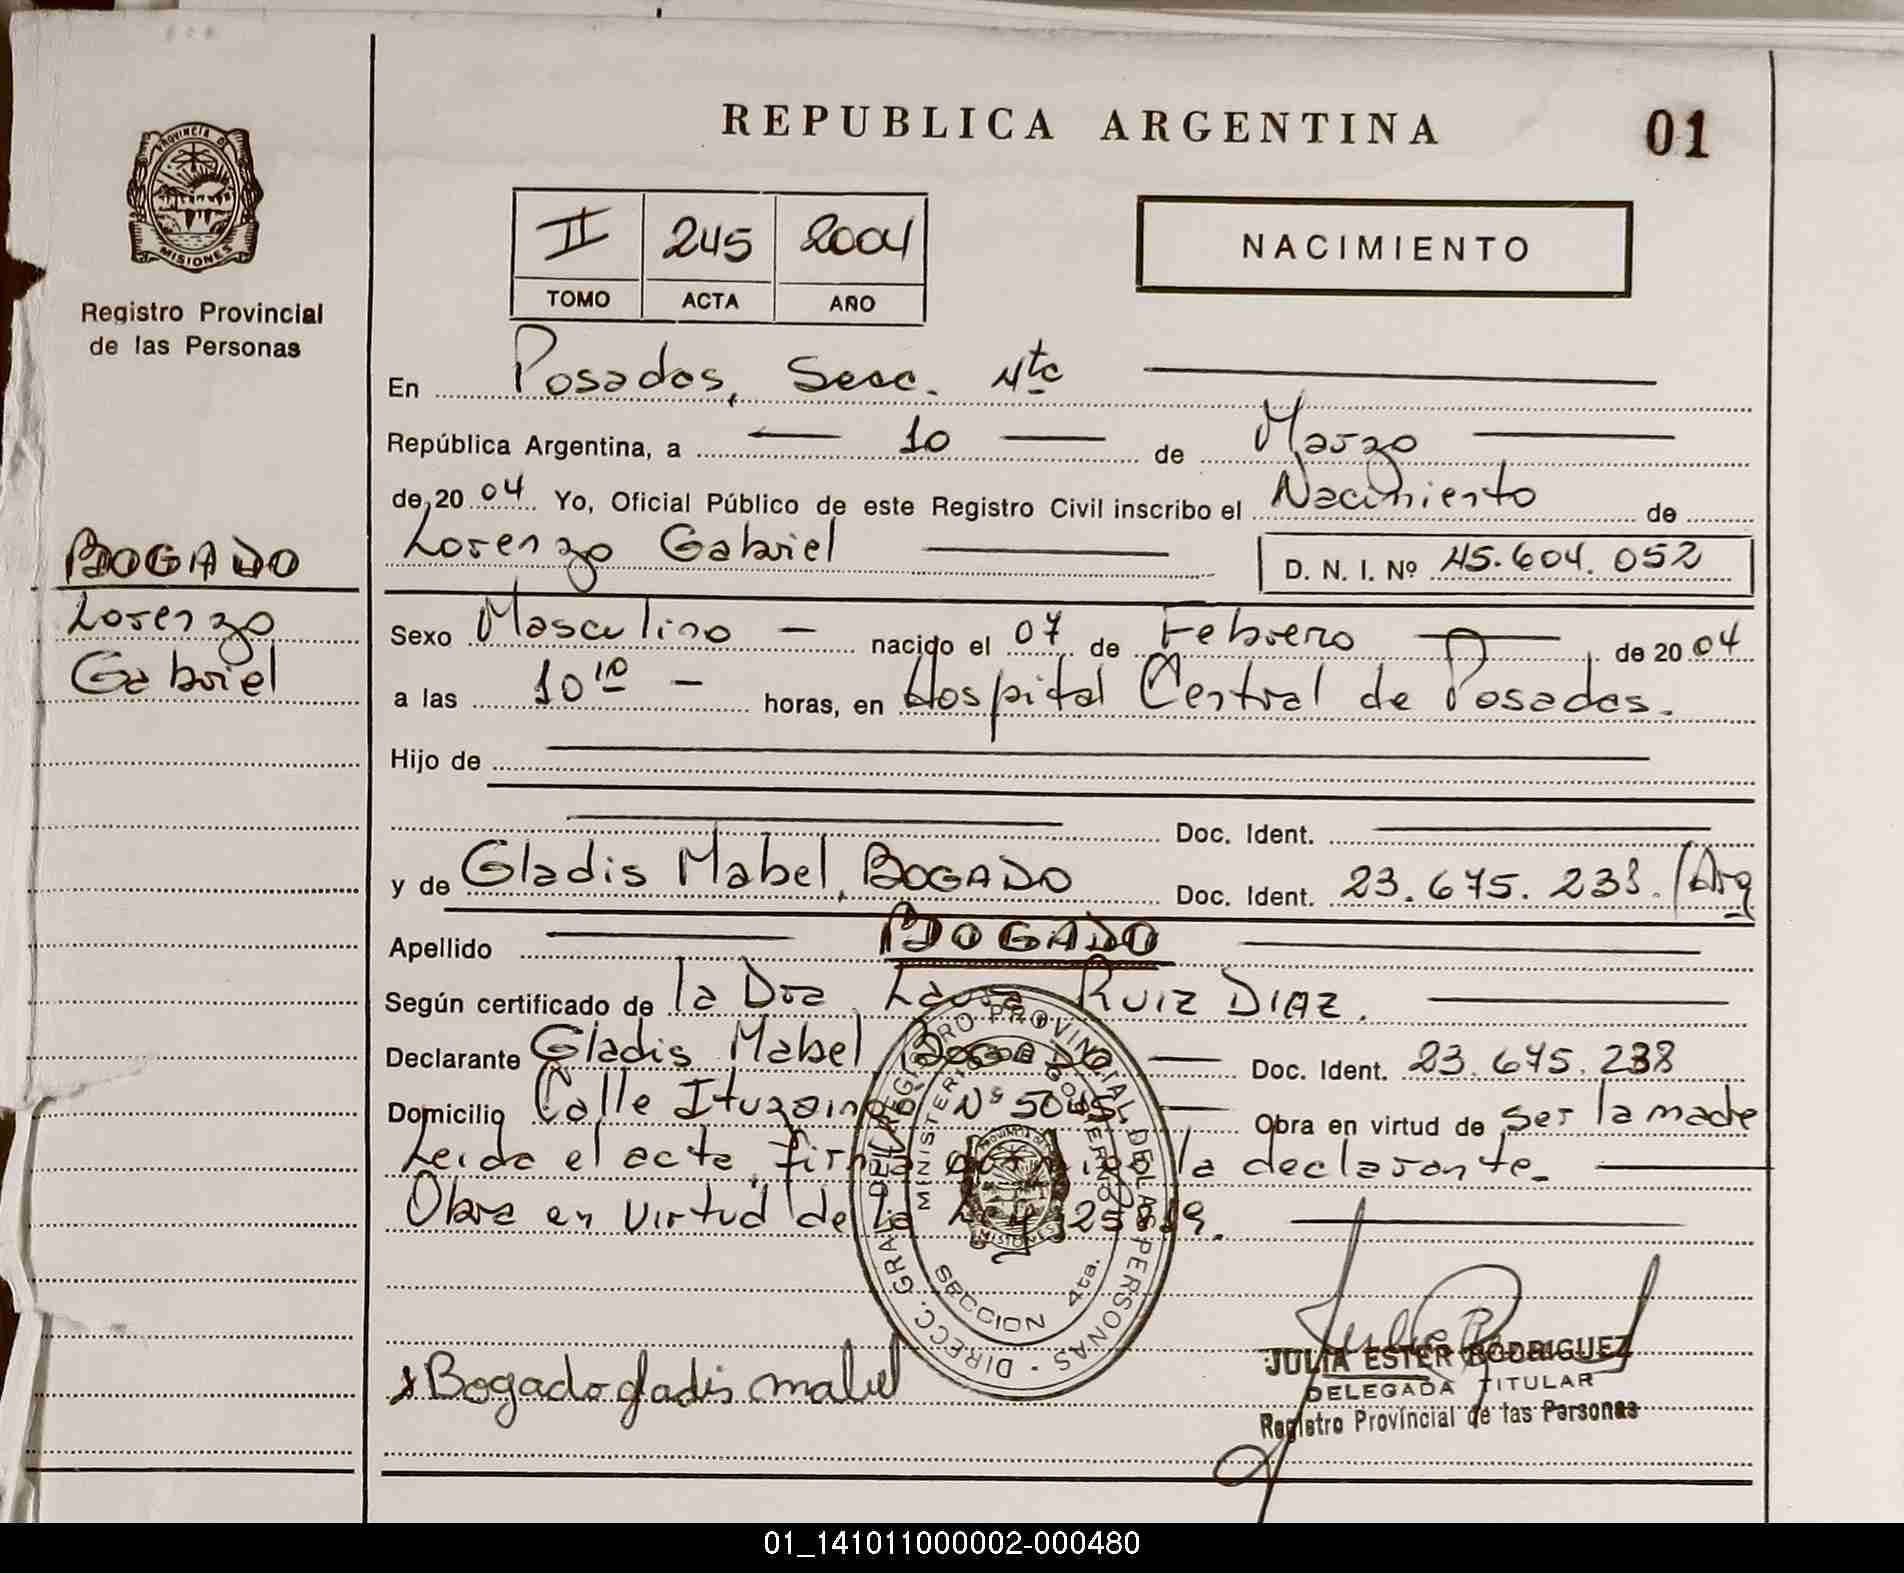 REPUBLICA ARGENTINA
01
PROVINCIA DE MISIONES
Registro Provincial
de las Personas
II 245 2004
TOMO ACTA AÑO
NACIMIENTO
En Posadas, Secc. 4ta
República Argentina, a 10 de Marzo
de 20 04 Yo, Oficial Público de este Registro Civil inscribo el Nacimiento de
Lorenzo Gabriel D. N. I. Nº 45.604.052
BOGADO
Lorenzo
Gabriel
Sexo Masculino nacido el 07 de Febrero de 20 04
a las 10 10 horas, en Hospital Central de Posadas.
Hijo de
Doc. Ident.
y de Gladis Mabel, BOGADO Doc. Ident. 23.675.238./Arg
Apellido BOGADO
Según certificado de la Dra. Laura RUIZ DIAZ.
Declarante Gladis Mabel BOGADO Doc. Ident. 23.675.238
Domicilio Calle Ituzaingo Nº 5045 Obra en virtud de ser la madre
Leida el acta, firma la declarante.
Obra en virtud de la Ley 25819.
DIRECC. GRAL. DEL REGISTRO PROVINCIAL DE LAS PERSONAS
MINISTERIO GOBIERNO
SECCION 4ta.
Bogado gladis mabel
JULIA ESTER RODRIGUEZ
DELEGADA TITULAR
Registro Provincial de las Personas
01_141011000002-000480